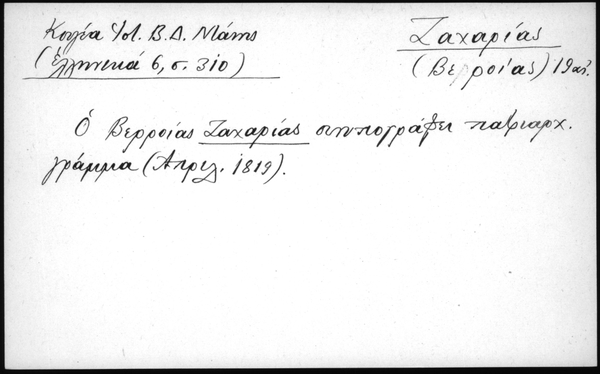 Κουγέα Ὑπ. Β.Δ. Μάνης
(Ἑλληνικά 6, σ. 310)
Ζαχαρίας
(Βερροίας) 19 αἰ.
Ὁ Βερροίας Ζαχαρίας συνυπογράφει πατριαρχ.
γράμμα (Ἀπριλ. 1819).